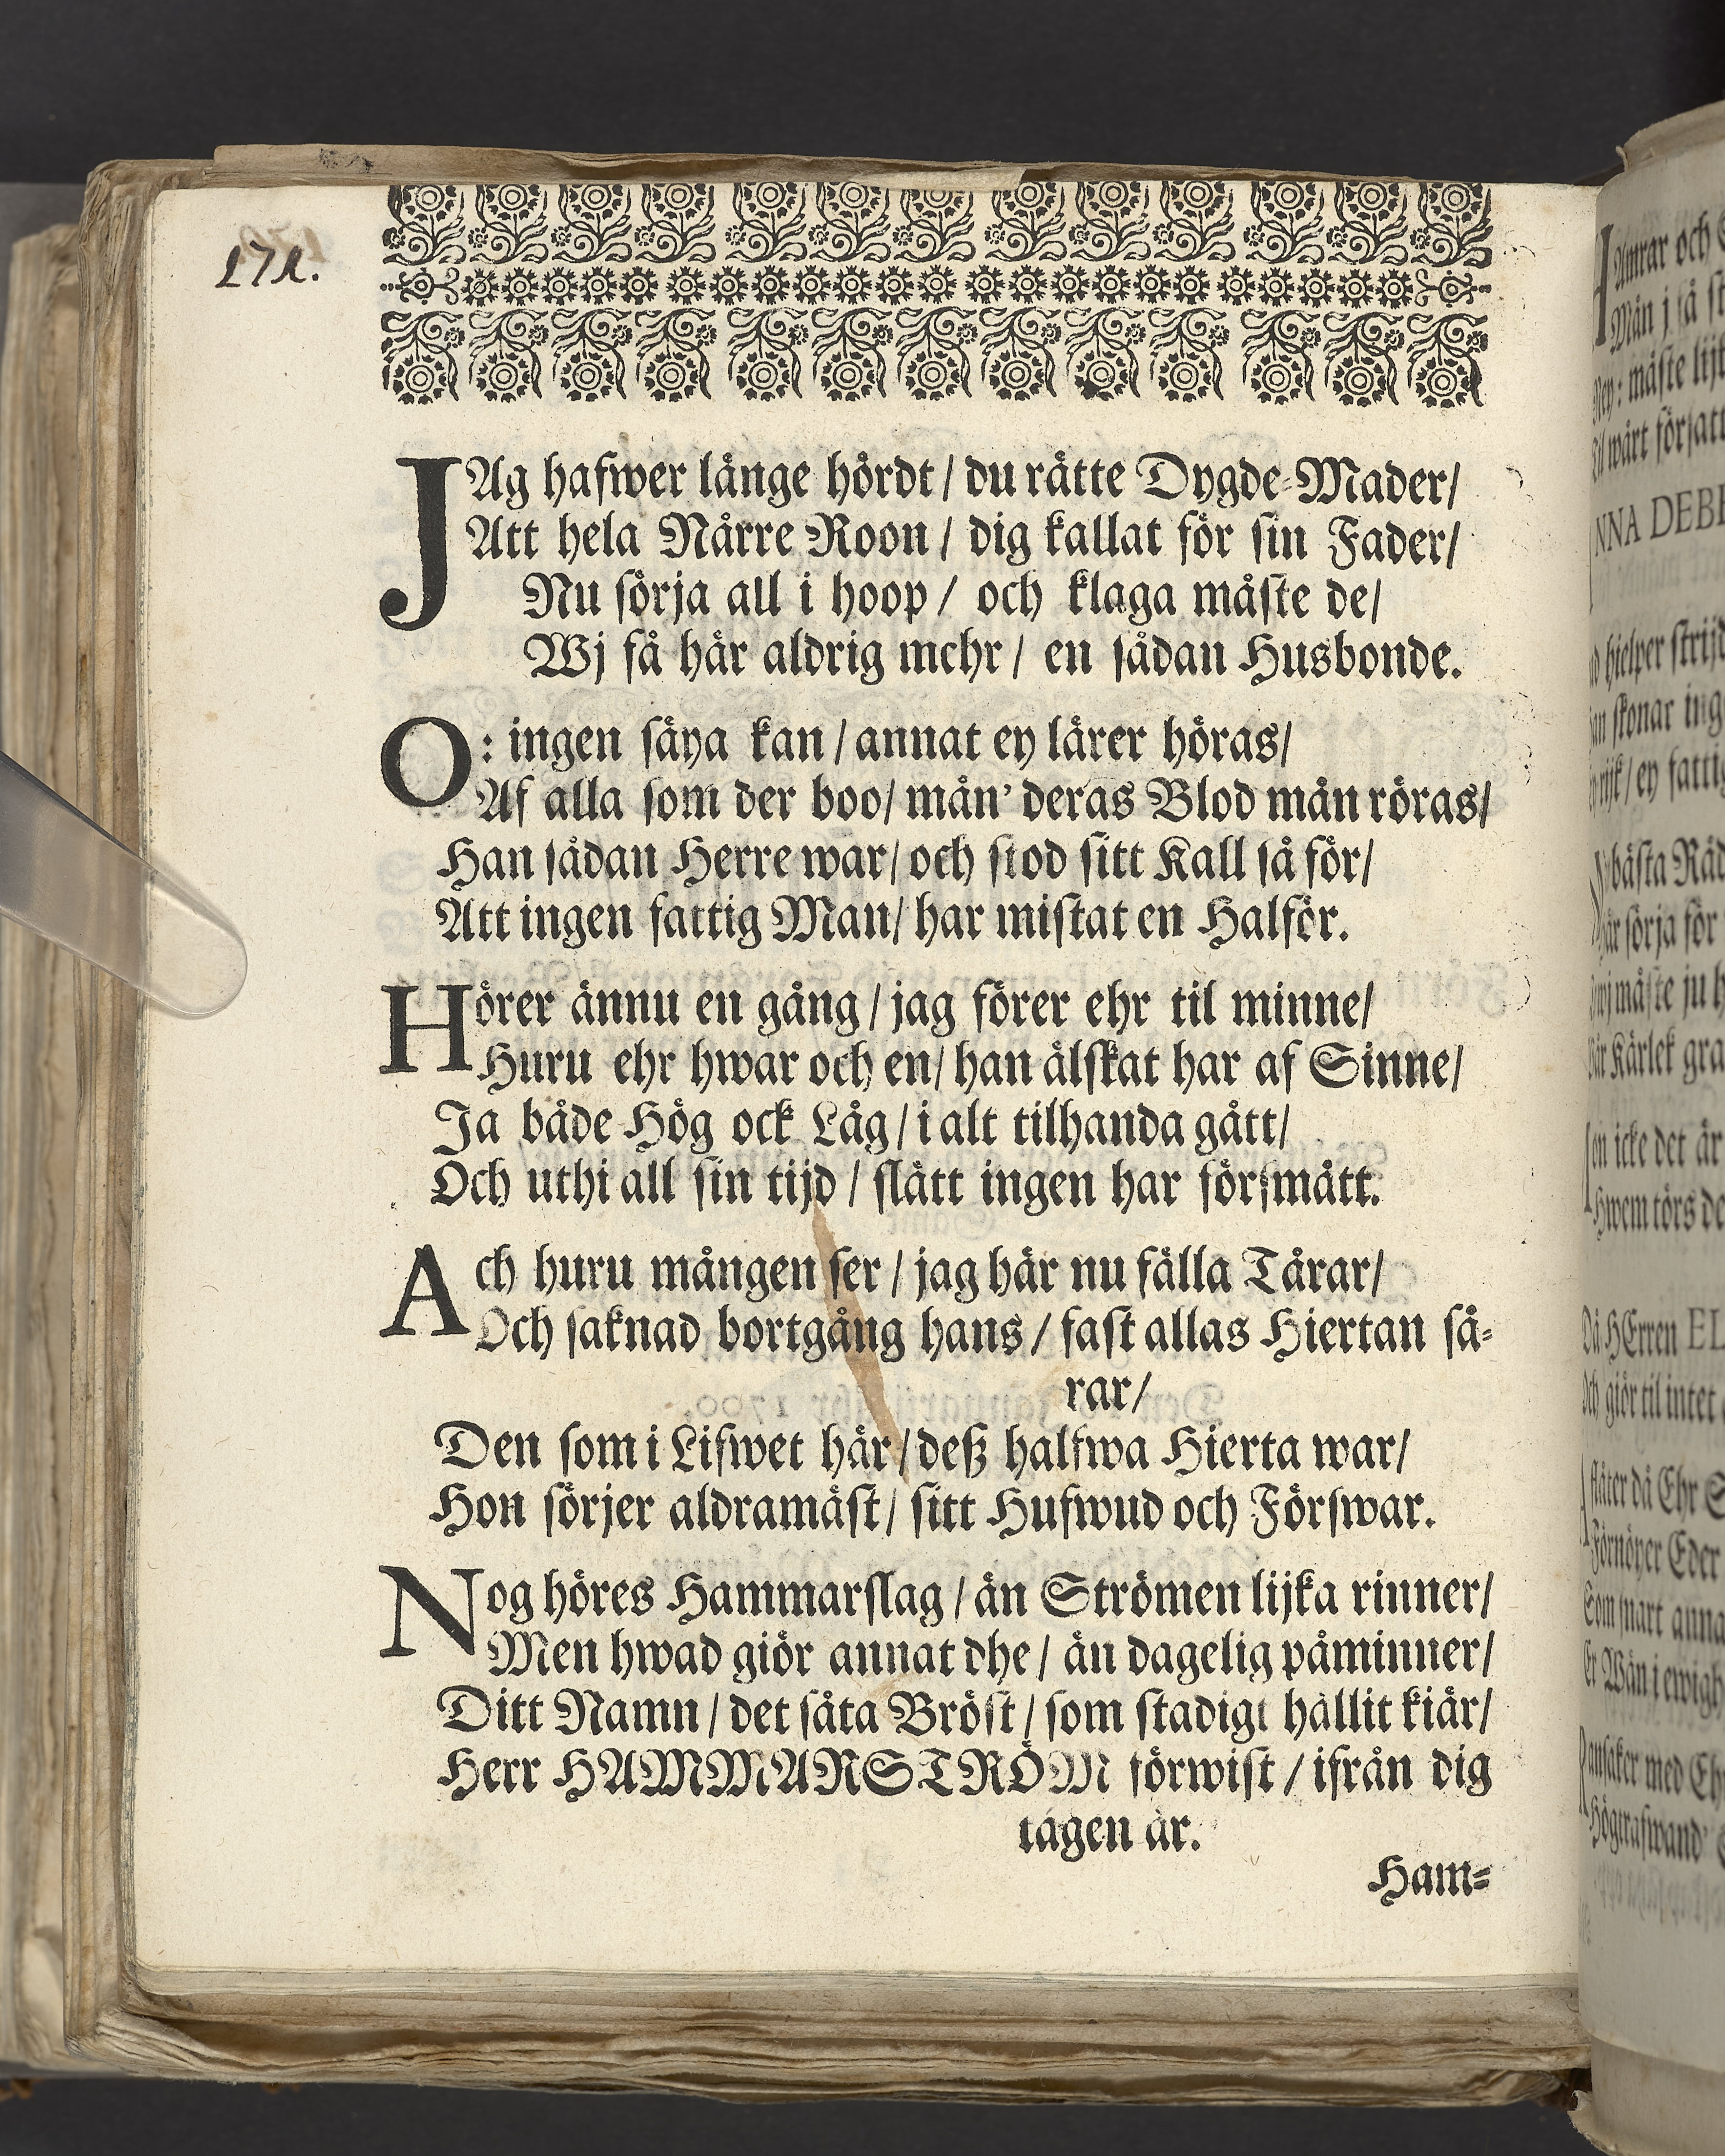 171.
JAg hafwer länge hördt / du rätte Dygde-Mader/
Att hela Närre Roon / dig kallat för sin Fader/
Nu sörja all i hoop / och klaga måste de/
Wj få här aldrig mehr / en sådan Husbonde.
O: ingen säya kan / annat ey lärer höras/
Af alla som der boo / mån' deras Blod mån röras/
Han sådan Herre war / och stod sitt Kall så för/
Att ingen fattig Man / har mistat en Halför.
Hörer ännu en gång / jag förer ehr til minne/
Huru ehr hwar och en / han älskat har af Sinne/
Ja både Hög ock Låg / i alt tilhanda gått/
Och uthi all sin tijd / slätt ingen har försmått.
Ach huru mången ser / jag här nu fälla Tårar/
Och saknad bortgång hans / fast allas Hiertan så-
rar/
Den som i Lifwet här / deß halfwa Hierta war/
Hon sörjer aldramäst / sitt Hufwud och Förswar.
Nog höres Hammarslag / än Strömen lijka rinner/
Men hwad giör annat dhe / än dagelig påminner/
Ditt Namn / det såta Bröst / som stadigt hållit kiär/
Herr HAMMARSTRÖM förwist / ifrån dig
tagen är.
Ham-
Amrar och
Män j så
Ney: måste
wårt försatt
NNA DEBE
hielper
skonar
ey fattig
bästa Råd
sörja för
måste ju
Kärlek
icke det är
Hwem törs
Då HErren EL
Och giör til intet
då Ehr
Förnöyer Eder
Som snart
Wän i
med